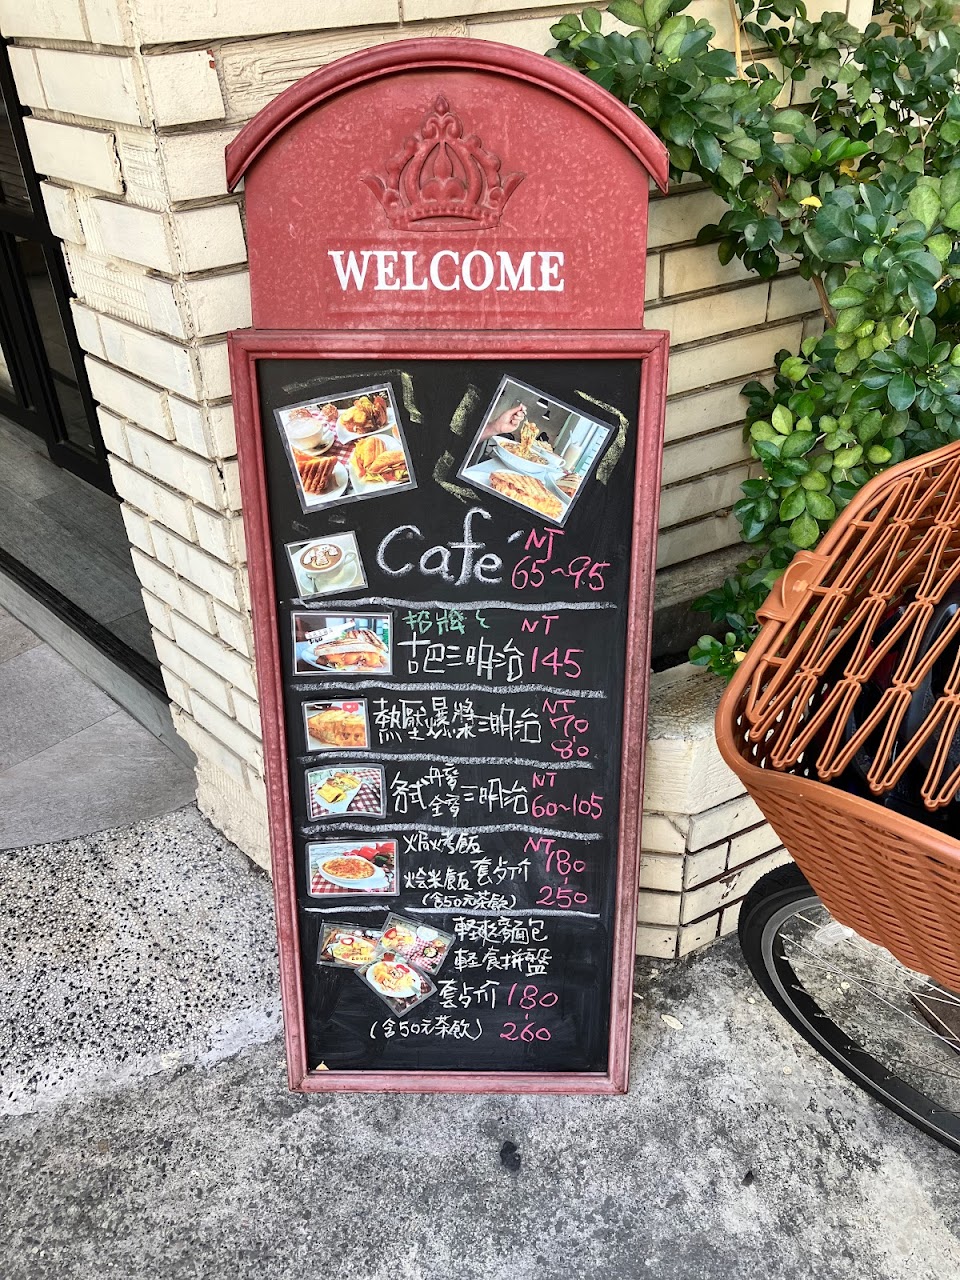 WELCOME
Café NT
65~95
招牌 NT
古巴三明治 145
熱壓爆漿三明治 NT
70
80
各式丹麥 NT
全麥三明治 60~105
焗烤飯 NT
燴米飯套餐价 180-250
(含50元茶飲)
輕爽麵包
輕食拼盤
套餐价 180-260
(含50元茶飲)